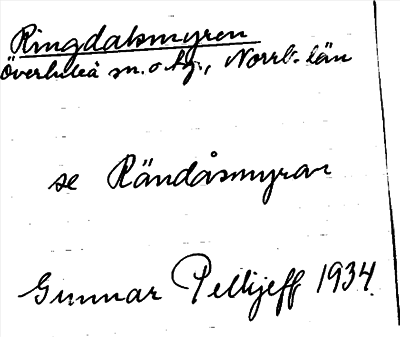 Ringdalsmyren
Överluleå sn. o. tg., Norrb. län
se Rändåsmyrar
Gunnar Pellijeff 1934.